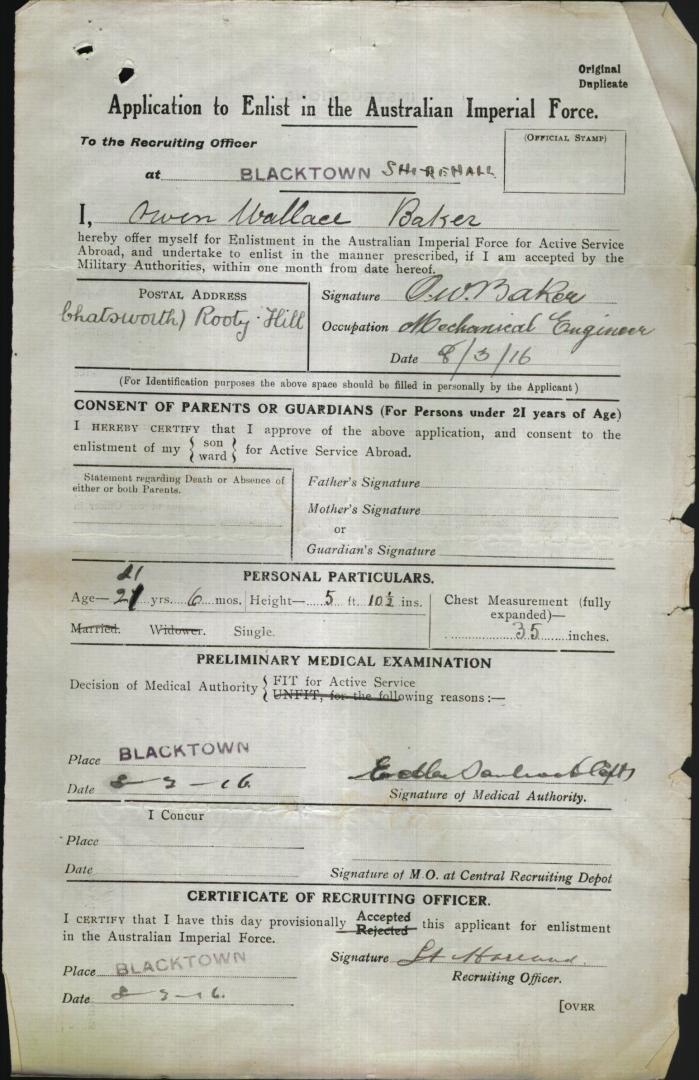 Original
Duplicate
Application to Enlist in the Australian Imperial Force.
To the Recruiting Officer
(OFFICIAL STAMP)
at BLACKTOWN SHIREHALL
I, Owen Wallace Baker
hereby offer myself for Enlistment in the Australian Imperial Force for Active Service
Abroad, and undertake to enlist in the manner prescribed, if I am accepted by the
Military Authorities, within one month from date hereof.
POSTAL ADDRESS
Chatsworth) Rooty Hill
Signature O.W. Baker
Occupation Mechanical Engineer
Date 8/3/16
(For Identification purposes the above space should be filled in personally by the Applicant)
CONSENT OF PARENTS OR GUARDIANS (For Persons under 21 years of Age)
I HEREBY CERTIFY that I approve of the above application, and consent to the
enlistment of my { son ward } for Active Service Abroad.
Statement regarding Death or Absence of
either or both Parents.
Father's Signature
Mother's Signature
or
Guardian's Signature
PERSONAL PARTICULARS.
21
Age—21 yrs. 6 mos. Height—5 ft. 10½ ins.
Chest Measurement (fully
expanded)—
35 inches.
Married. Widower. Single.
PRELIMINARY MEDICAL EXAMINATION
Decision of Medical Authority { FIT for Active Service
UNFIT, for the following reasons:—
Place BLACKTOWN
Date 8-3-16.
Signature of Medical Authority.
I Concur
Place
Date
Signature of M.O. at Central Recruiting Depot
CERTIFICATE OF RECRUITING OFFICER.
I CERTIFY that I have this day provisionally Accepted Rejected this applicant for enlistment
in the Australian Imperial Force.
Signature
Recruiting Officer.
Place BLACKTOWN
Date 8-3-16.
[OVER